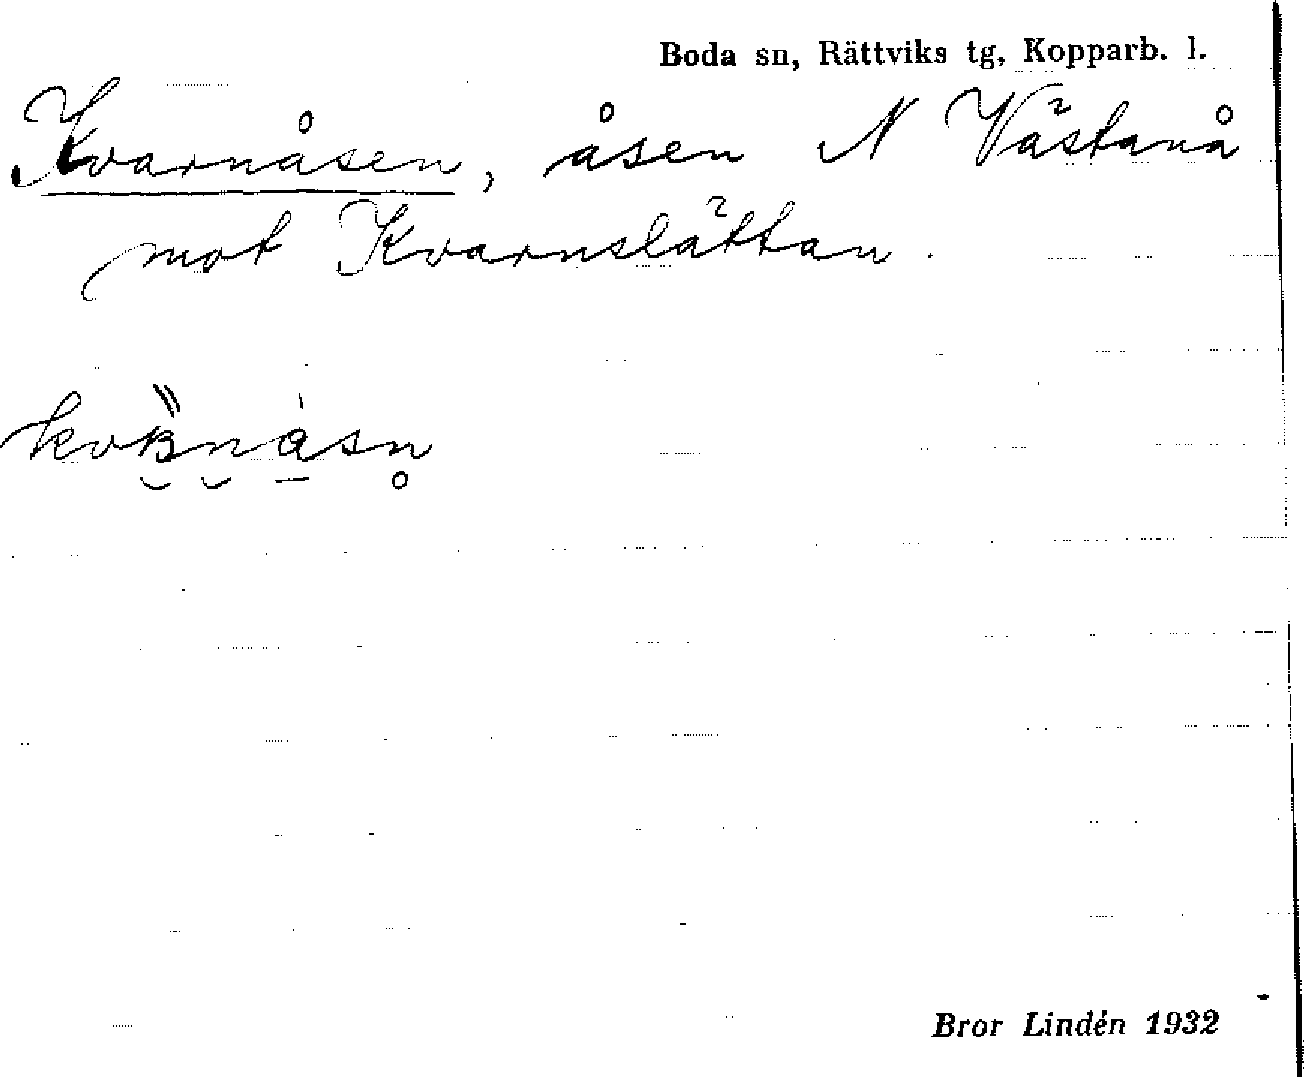 Boda sn, Rättviks tg, Kopparb. l.
Kvarnåsen, åsen N Västanå
mot Kvarnslättan.
Bror Lindén 1932